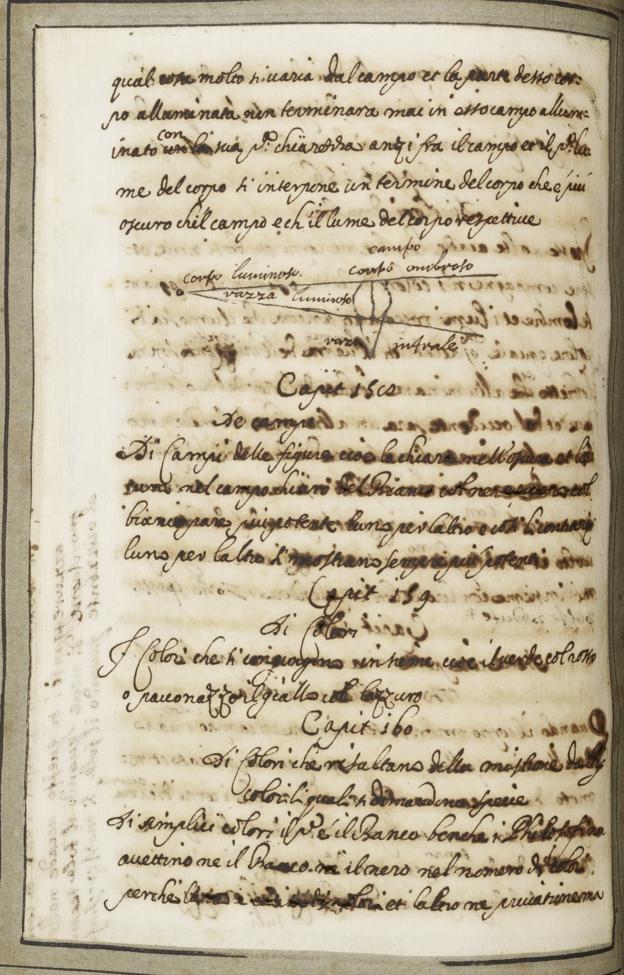 qual cosa molto si varia dal campo et la parte detto cor=
po alluminata non terminara mai in esso campo allum=
inato con la sua p.ª chiarezza anzi fra il campo et il p.º lu=
me del corpo si interpone un termine del corpo che é piu
oscuro ch'il campo e ch'il lume del corpo respettive
campo
corpo luminoso. corpo ombroso
razza luminosa
razo
Capit 158
De campi
Di Campi delle figure cioè la chiara nell'oscura et la
scura nel campo chiaro del Bianco col nero col
bianco pare piu potente l'uno per l'altro e cosi li contrarij
l'uno per l'altro si mostrano sempre piu potenti
Capit 159
Di Colori
I Colori che si congiungono insieme cioè il verde col rosso
o pavonazzo e il giallo col lazzuro
Capit 160
Di Colori che risultano della mistione delli
colori li quali si dimandano specie
Di simplici colori il p.º é il Bianco benche i Philosofi non
accettino ne il Bianco ne il nero nel numero di colori
perche et l'altro ne privatione ma